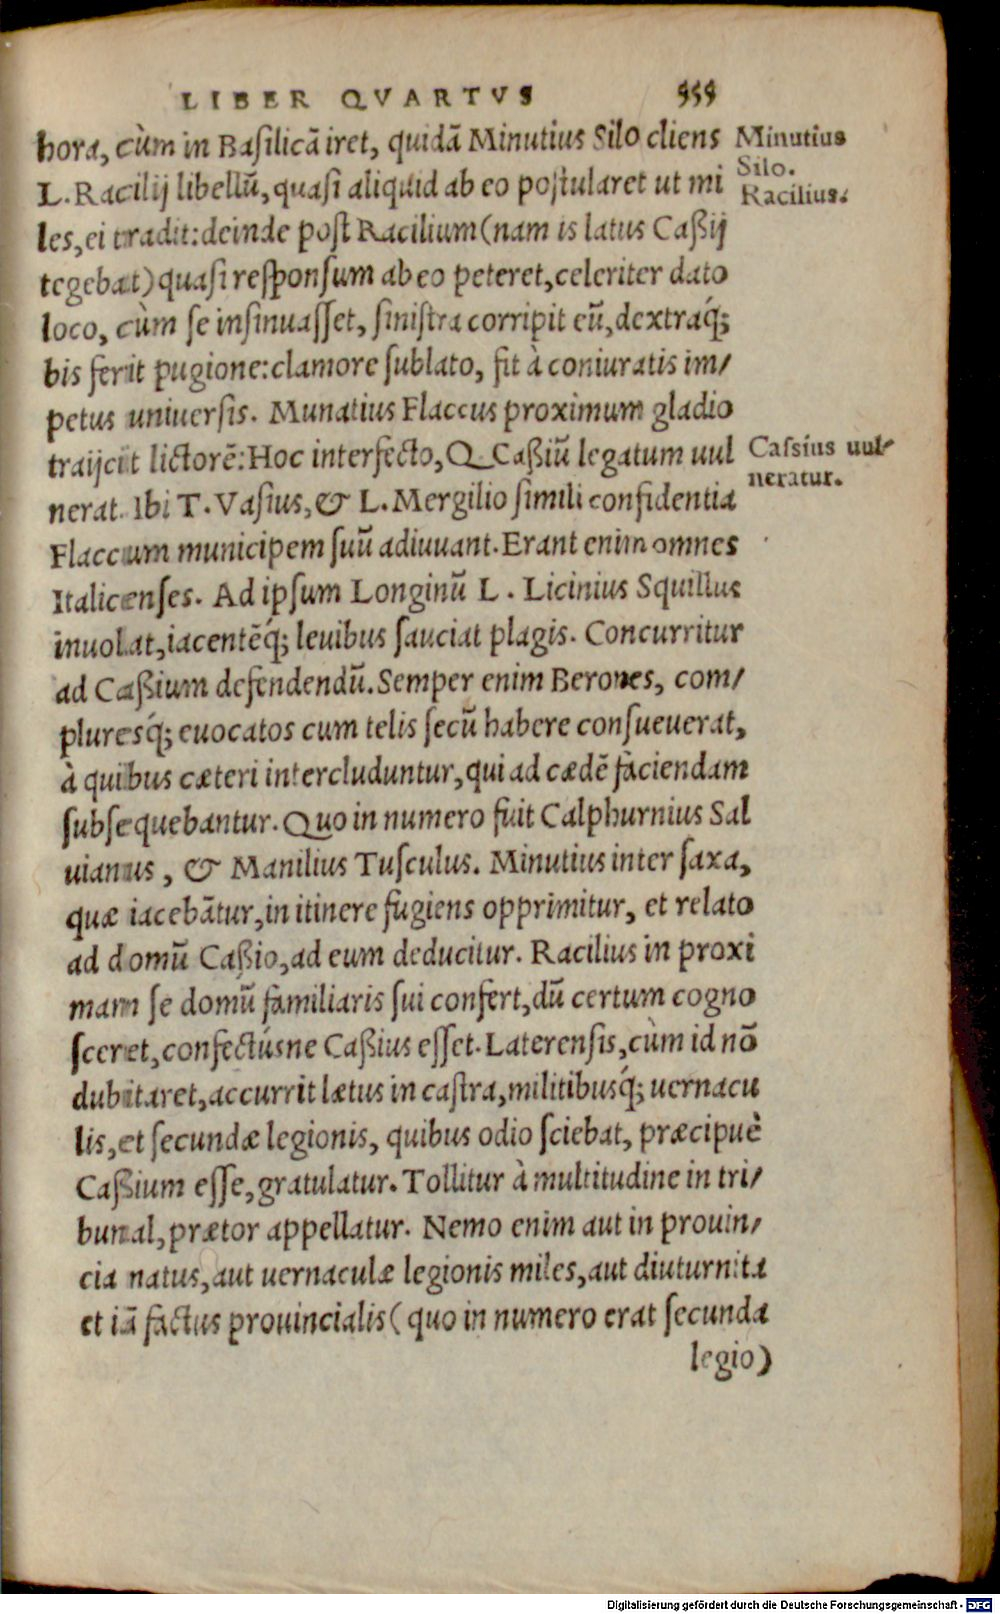 LIBER QVARTVS 555
hora, cùm in Basilicā iret, quidā Minutius Silo cliens
Minutius
Silo.
L. Racilij libellū, quasi aliquid ab eo postularet ut mi
Racilius.
les, ei tradit: deinde post Racilium (nam is latus Caßij
tegebat) quasi responsum ab eo peteret, celeriter dato
loco, cùm se insinuasset, sinistra corripit eū, dextraq́;
bis ferit pugione: clamore sublato, fit à coniuratis im/
petus uniuersis. Munatius Flaccus proximum gladio
traijcit lictorē: Hoc interfecto, Q. Caßiū legatum uul
Cassius uul/
neratur.
nerat. Ibi T. Vasius, & L. Mergilio simili confidentia
Flaccum municipem suū adiuuant. Erant enim omnes
Italicenses. Ad ipsum Longinū L. Licinius Squillus
inuolat, iacentēq́; leuibus sauciat plagis. Concurritur
ad Caßium defendendū. Semper enim Berones, com/
pluresq́; euocatos cum telis secū habere consueuerat,
à quibus cæteri intercluduntur, qui ad cædē faciendam
subsequebantur. Quo in numero fuit Calphurnius Sal
uianus, & Manilius Tusculus. Minutius inter saxa,
quæ iacebātur, in itinere fugiens opprimitur, et relato
ad domū Caßio, ad eum deducitur. Racilius in proxi
mam se domū familiaris sui confert, dū certum cogno
sceret, confectúsne Caßius esset. Laterensis, cùm id nō
dubitaret, accurrit lætus in castra, militibusq́; uernacu
lis, et secundæ legionis, quibus odio sciebat, præcipuè
Caßium esse, gratulatur. Tollitur à multitudine in tri/
bunal, prætor appellatur. Nemo enim aut in prouin/
cia natus, aut uernaculæ legionis miles, aut diuturnita
et iā factus prouincialis (quo in numero erat secunda
legio)
Digitalisierung gefördert durch die Deutsche Forschungsgemeinschaft - DFG